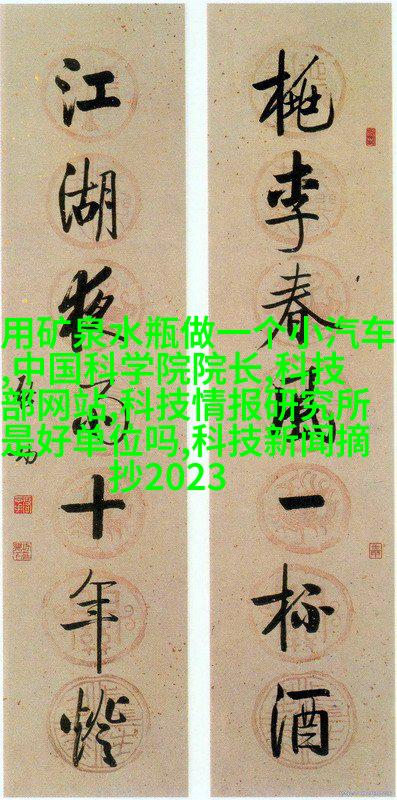 桃李春风一杯酒
江湖夜雨十年灯
用矿泉水瓶做一个小汽车
,中国科学院院长,科技
部网站,科技情报研究所
是好单位吗,科技新闻摘
抄2023